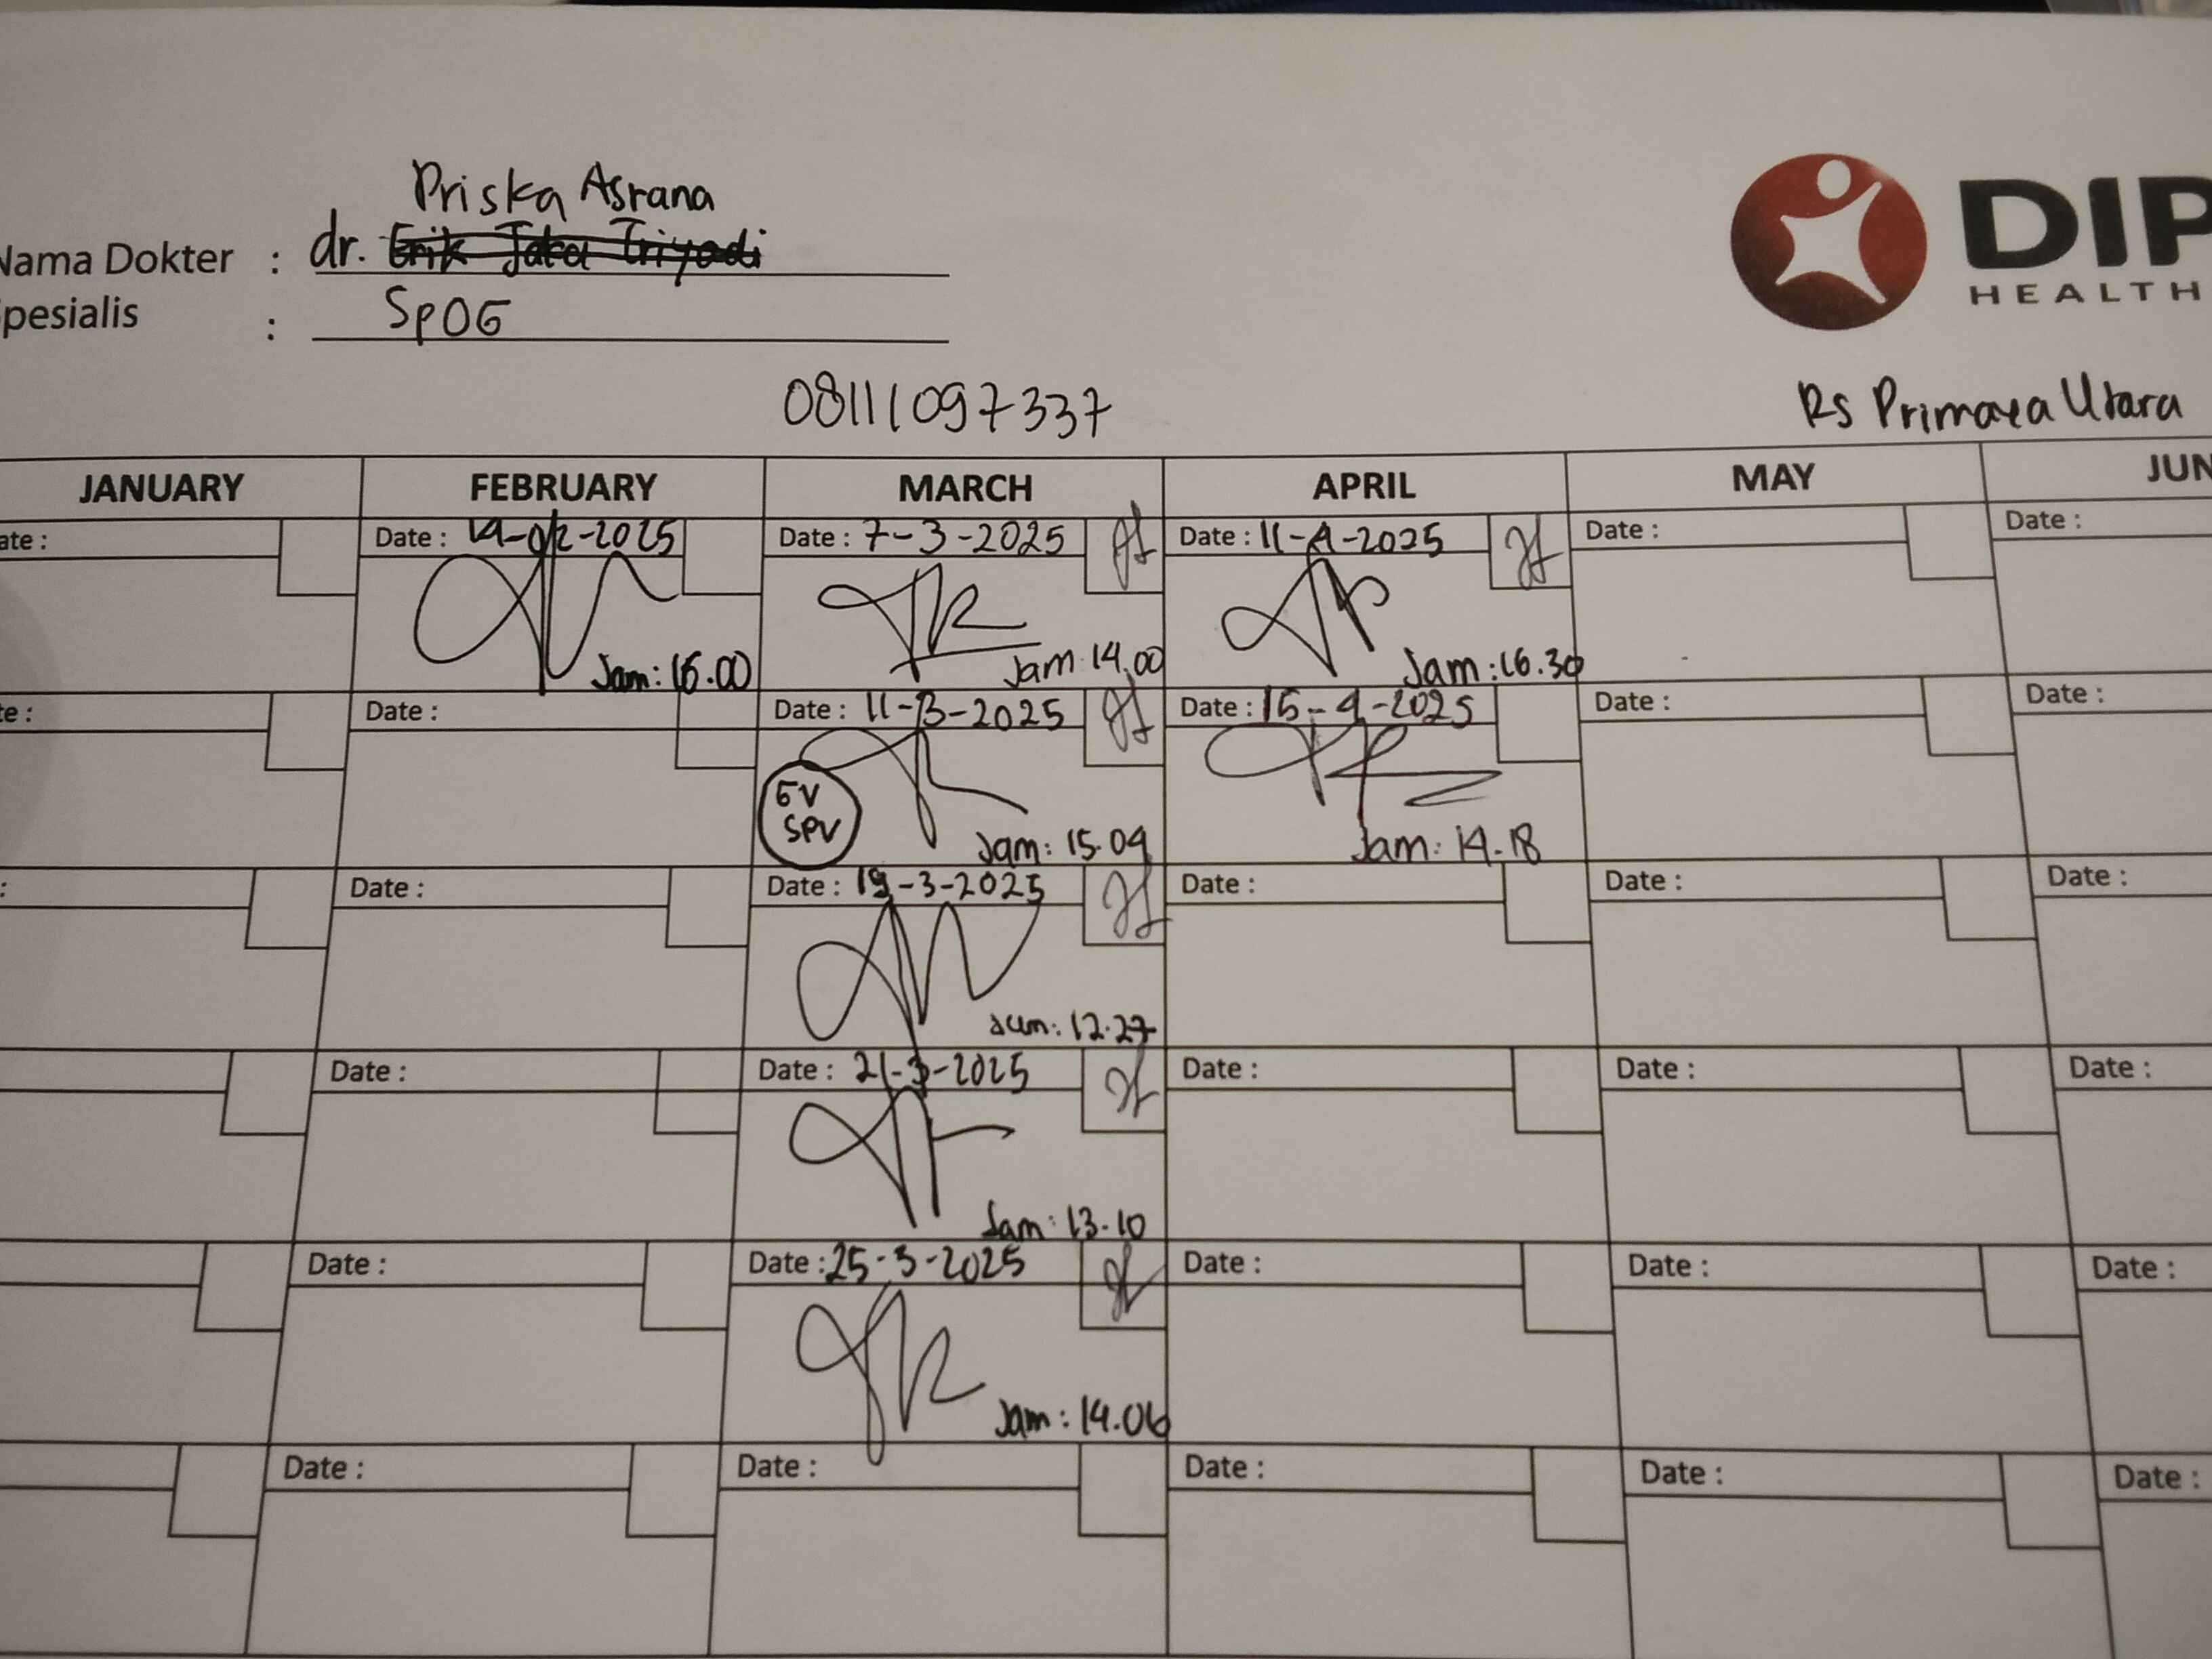 Priska Asrana
Nama Dokter : dr. Erik Jaka Triyadi
Spesialis : SpOG
DIP
HEALTH
08111097337
Rs Primaya Utara
JANUARY FEBRUARY MARCH APRIL MAY JUN
ate : Date : 14-02-2025 Date : 7-3-2025 Date : 11-4-2025 Date : Date :
Jam: 16.00 Jam 14.00 Jam: 16.30
te : Date : Date : 11-3-2025 Date : 15-4-2025 Date : Date :
GV
SPV
Jam: 15.09 Jam: 14.18
: Date : Date : 19-3-2025 Date : Date : Date :
Jam: 12.27
Date : Date : 21-3-2025 Date : Date : Date :
Jam: 13.10
Date : Date : 25-3-2025 Date : Date : Date :
Jam: 14.06
Date : Date : Date : Date : Date :